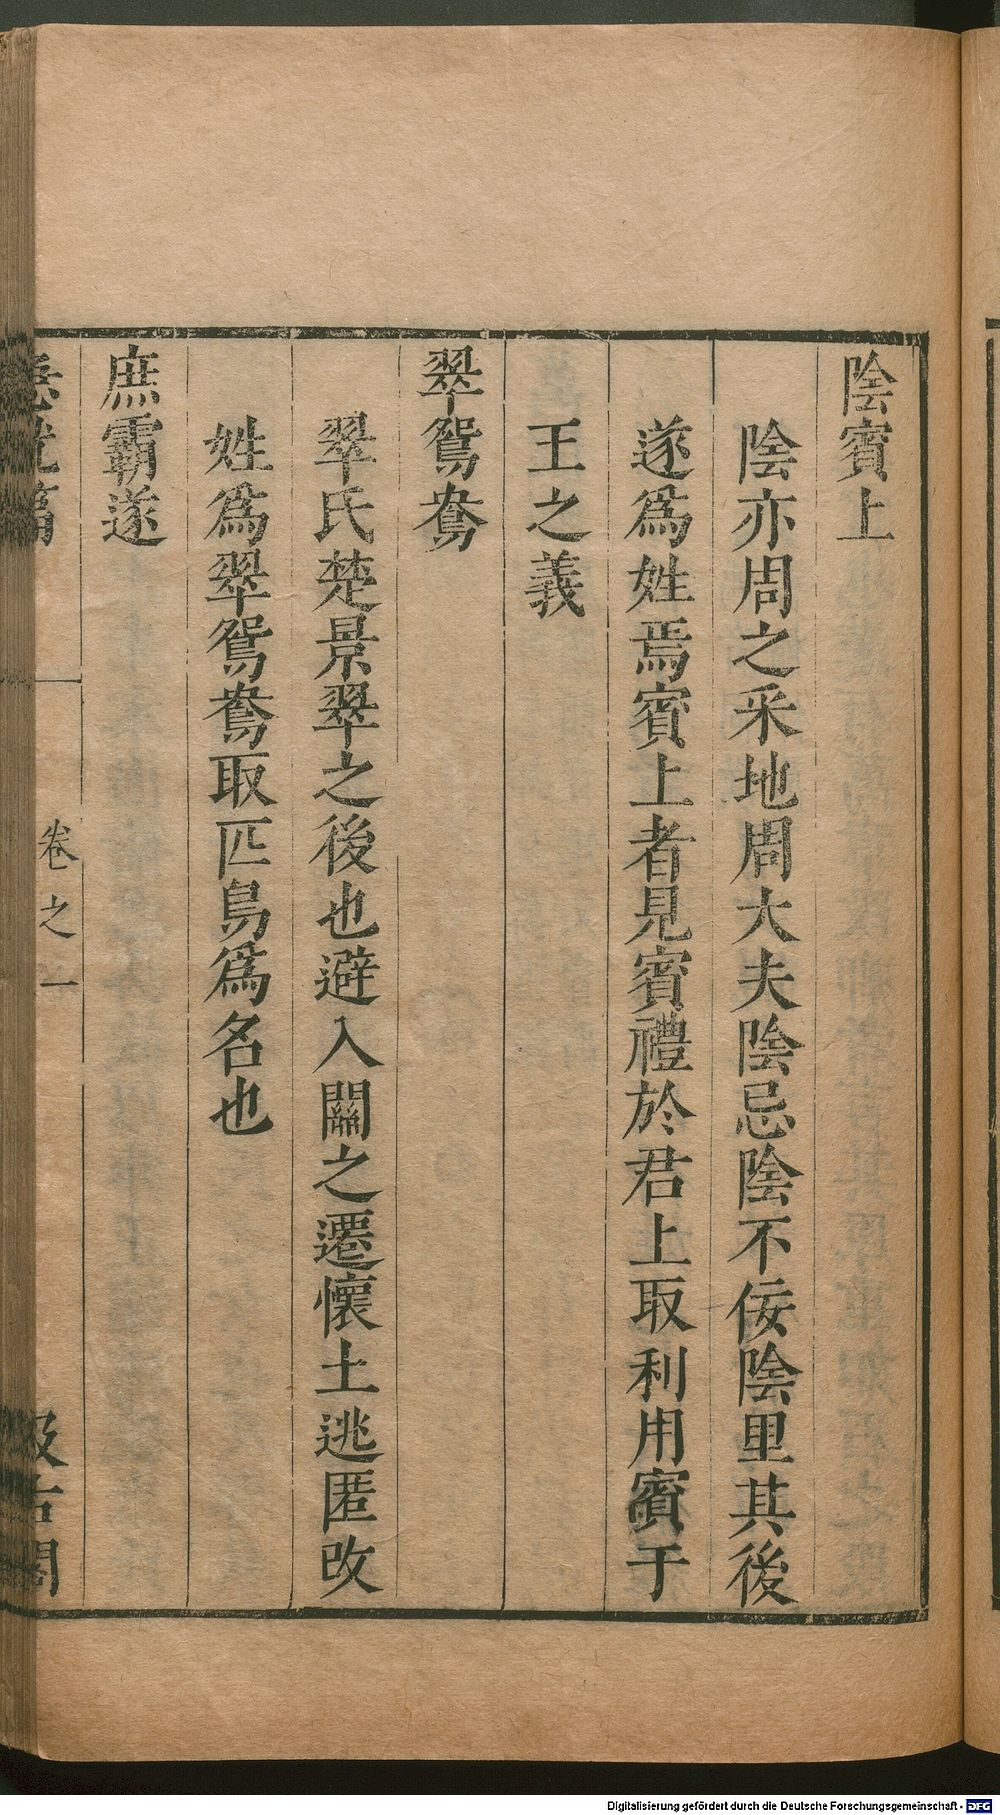 陰賓上
陰亦周之采地周大夫陰忌陰不佞陰里其後
遂爲姓焉賓上者見賓禮於君上取利用賓于
王之義
翠鴛鴦
翠氏楚景翠之後也避入關之遷懷土逃匿改
姓爲翠鴛鴦取匹鳥爲名也
庶霸遂
急就篇
卷之一
汲古閣
Digitalisierung gefördert durch die Deutsche Forschungsgemeinschaft - DFG